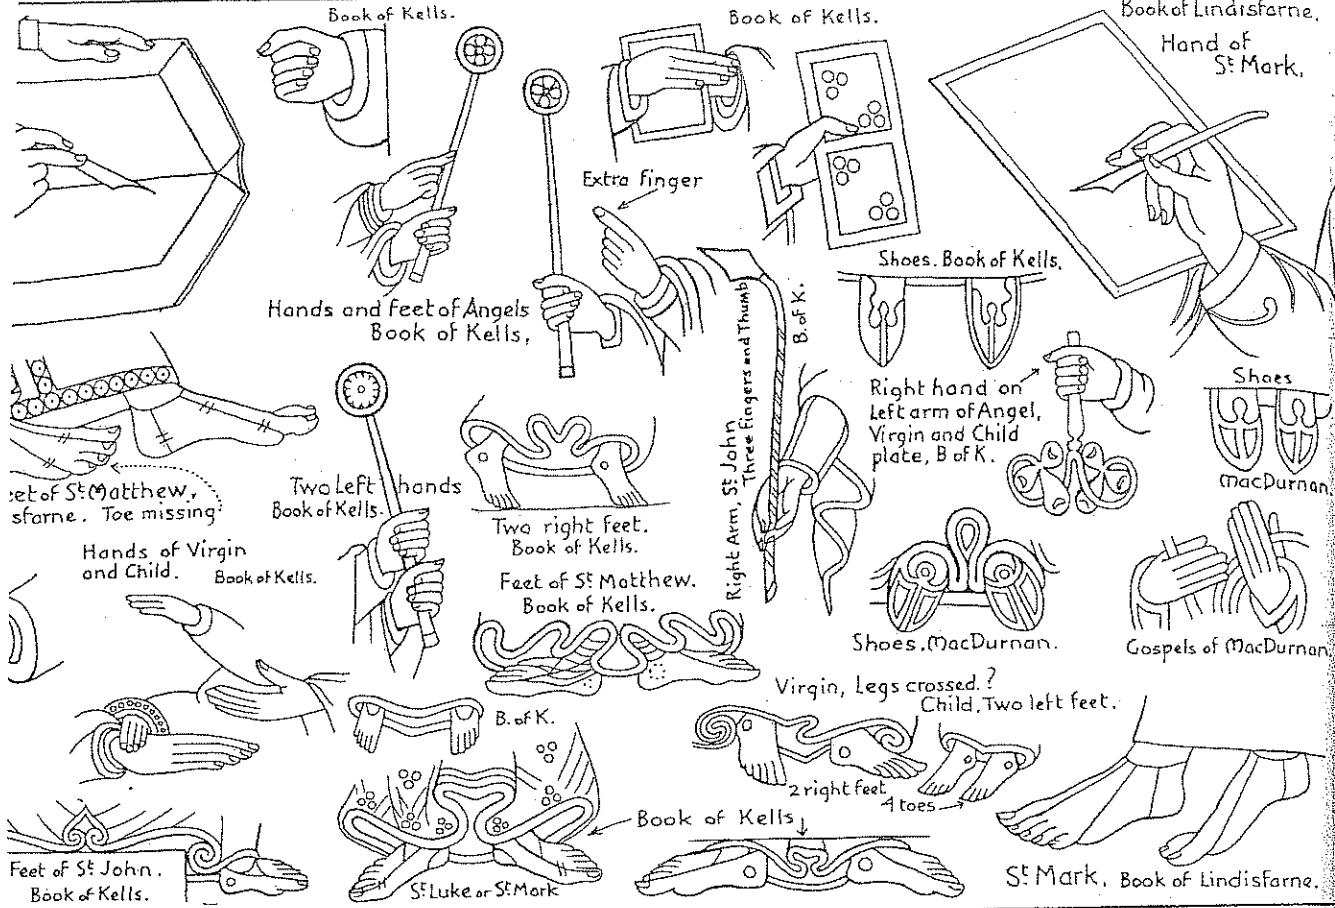 Book of Kells.
Book of Kells.
Book of Lindisfarne.
Hand of
St Mark.
Extra finger
Hands and feet of Angels
Book of Kells,
Shoes. Book of Kells.
Right Arm, St John
Three Fingers and Thumb
B. of K.
Right hand on
Left arm of Angel,
Virgin and Child
plate, B of K.
Shoes
MacDurnan
eet of St Matthew,
sfarne. Toe missing
Two Left hands
Book of Kells.
Two right feet.
Book of Kells.
Hands of Virgin
and Child. Book of Kells.
Feet of St Matthew.
Book of Kells.
Shoes. MacDurnan.
Gospels of MacDurnan
B. of K.
Virgin, Legs crossed.?
Child. Two left feet.
2 right feet
4 toes
Book of Kells
Feet of St John.
Book of Kells.
St Luke or St Mark
St Mark. Book of Lindisfarne.